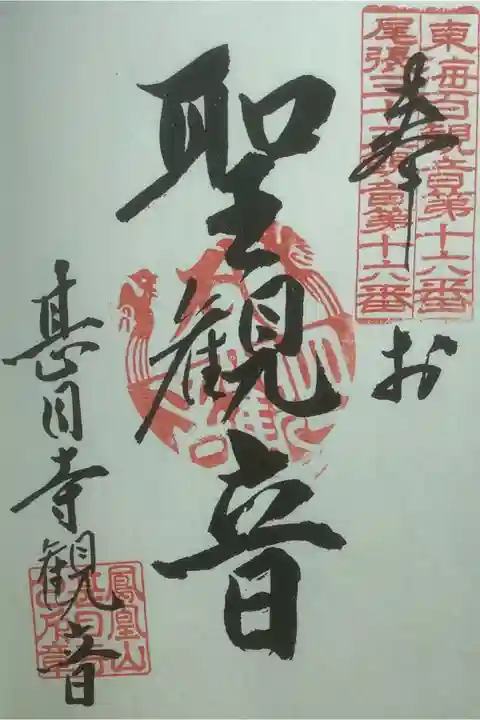 東海百観音第十六番
尾張三十三観音第十六番
奉
拝
聖観音
甚目寺観音
鳳凰山